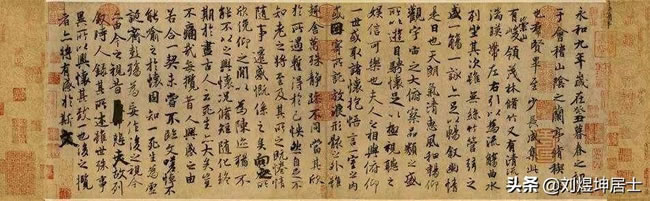 永和九年歲在癸丑暮春之初會
于會稽山陰之蘭亭脩稧事
也羣賢畢至少長咸集此地
有崇山峻領茂林脩竹又有清流激
湍暎帶左右引以為流觴曲水
列坐其次雖無絲竹管弦之
盛一觴一詠亦足以暢敘幽情
是日也天朗氣清惠風和暢仰
觀宇宙之大俯察品類之盛
所以遊目騁懷足以極視聽之
娛信可樂也夫人之相與俯仰
一世或取諸懷抱悟言一室之內
或因寄所託放浪形骸之外雖
趣舍萬殊靜躁不同當其欣
於所遇蹔得於己怏然自足不
知老之將至及其所之既惓情
隨事遷感慨係之矣向之所
欣俛仰之閒以為陳迹猶不
能不以之興懷況脩短隨化終
期於盡古人云死生亦大矣豈
不痛哉每攬昔人興感之由
若合一契未嘗不臨文嗟悼不
能喻之於懷固知一死生為虛
誕齊彭殤為妄作後之視今
亦由今之視昔悲夫故列
敘時人錄其所述雖世殊事
異所以興懷其致一也後之攬
者亦將有感於斯文
头条 @刘煜坤居士